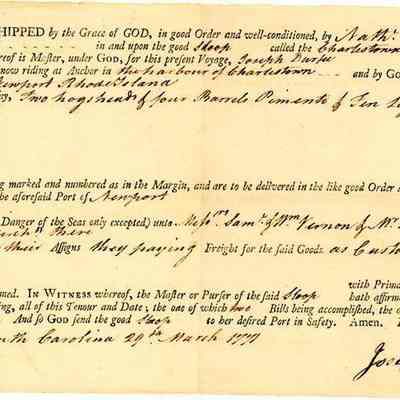 HIPPED by the Grace of GOD, in good Order and well-conditioned, by Nathl.
in and upon the good Sloop called the Charlestown
ereof is Master, under GOD, for this present Voyage, Joseph Durfee
now riding at Anchor in the harbour of Charlestown and by GO
Newport Rhode Island
Two hogsheads & four Barrels Pimento & Ten
ng marked and numbered as in the Margin, and are to be delivered in the like good Order a
he aforesaid Port of Newport
Danger of the Seas only excepted) unto Messrs Saml. & Wm Vernon & Mr
there
their Assigns they paying Freight for the said Goods as Custo
with Prima
med. IN WITNESS whereof, the Master or Purser of the said Sloop hath affirm
ing, all of this Tenour and Date; the one of which two Bills being accomplished, the o
And so GOD send the good Sloop to her desired Port in Safety. Amen.
uth Carolina 29th March 1771
Jose